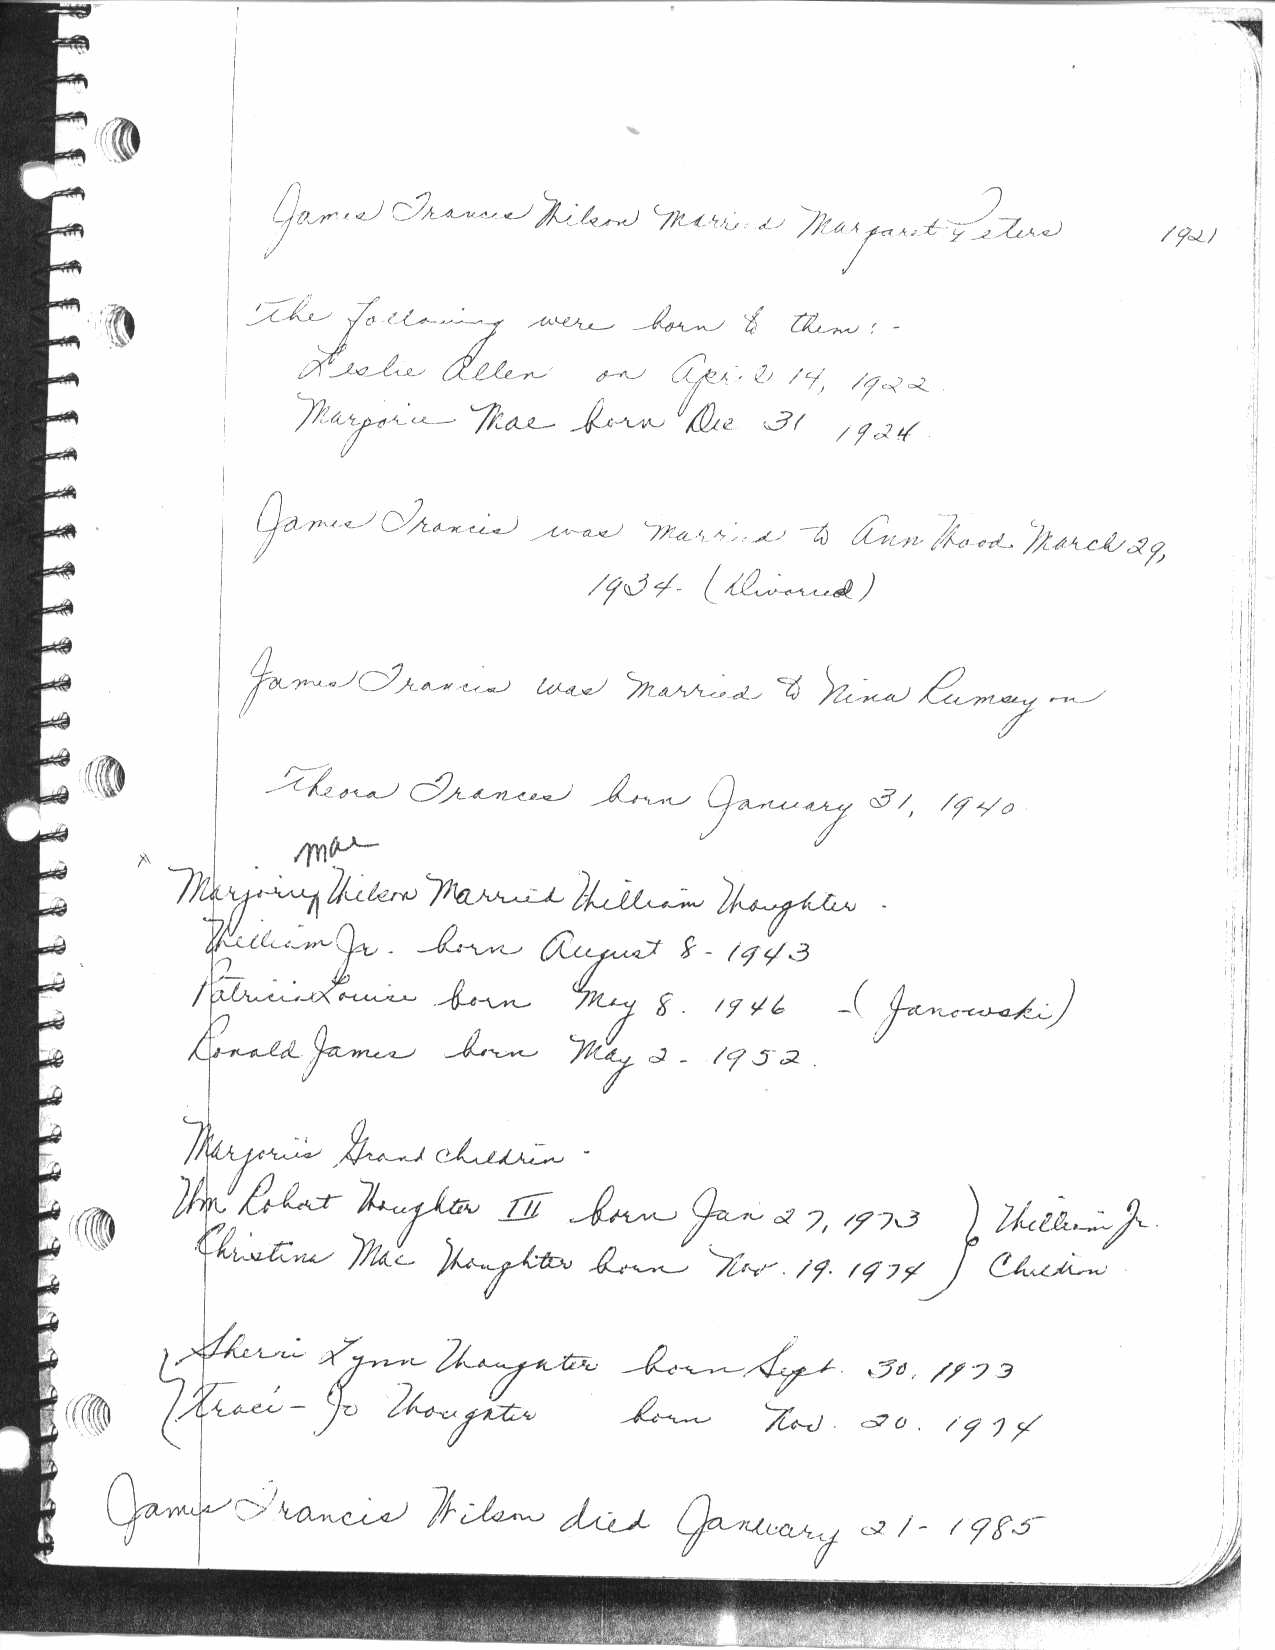 James Francis Wilson Married Margaret Peters 1921
The following were born to them: -
Leslie Allen on April 14, 1922.
Marjorie Mae born Dec 31 1924.
James Francis was married to Ann Wood March 29,
1934. (Divorced)
James Francis was married to Nina Rumsey on
Theora Frances born January 31, 1940.
x Marjorie Mae Wilson Married William Woughter.
William Jr. born August 8 - 1943
Patricia Louise born May 8. 1946 - (Janowski)
Ronald James born May 2 - 1952.
Marjorie's Grand children -
Wm Robert Woughter III born Jan 27, 1973 } William Jr.
Christina Mae Woughter born Nov. 19. 1974 } Children
{ Sherri Lynn Woughter born Sept. 30, 1973
{ Traci - Jo Woughter born Nov. 20. 1974
James Francis Wilson died January 21 - 1985